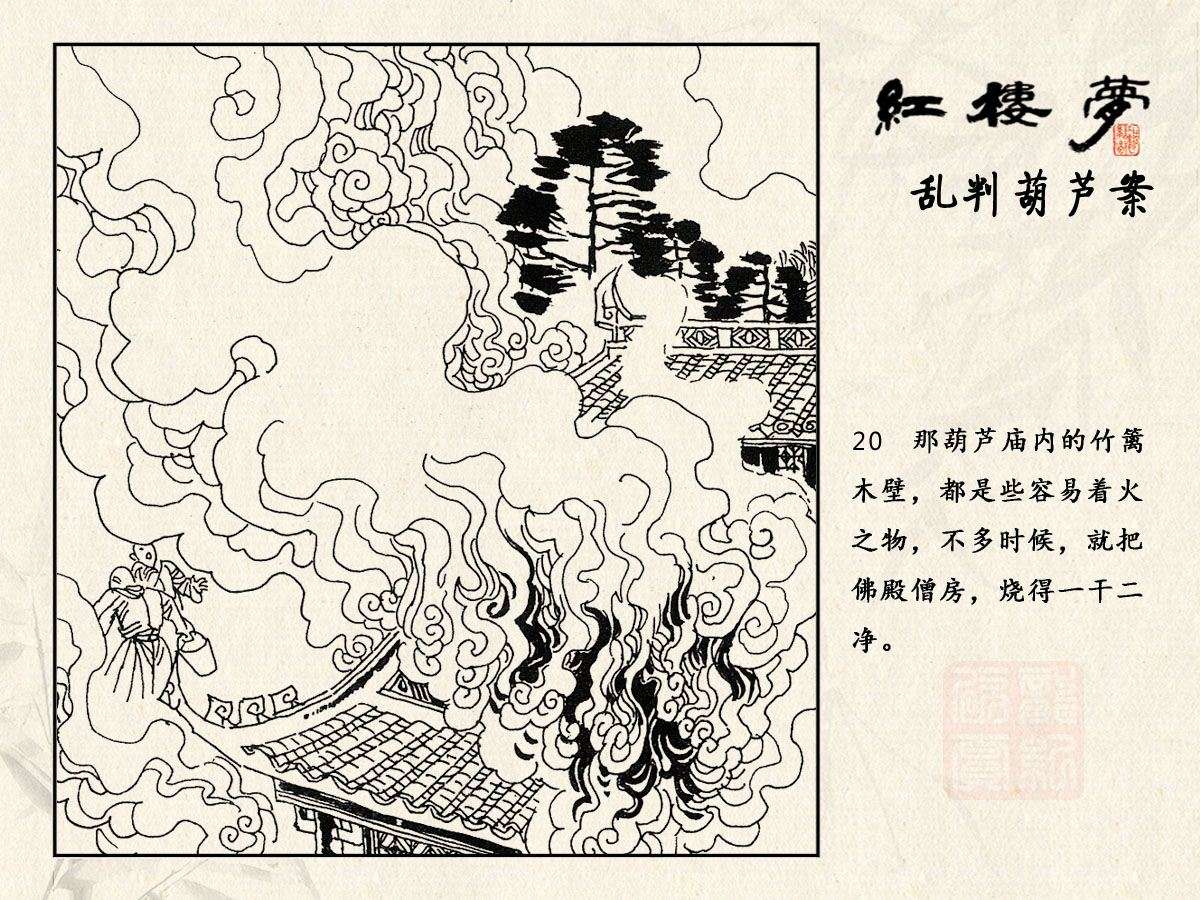 紅樓夢
乱判葫芦案
20 那葫芦庙内的竹篱
木壁，都是些容易着火
之物，不多时候，就把
佛殿僧房，烧得一干二
净。